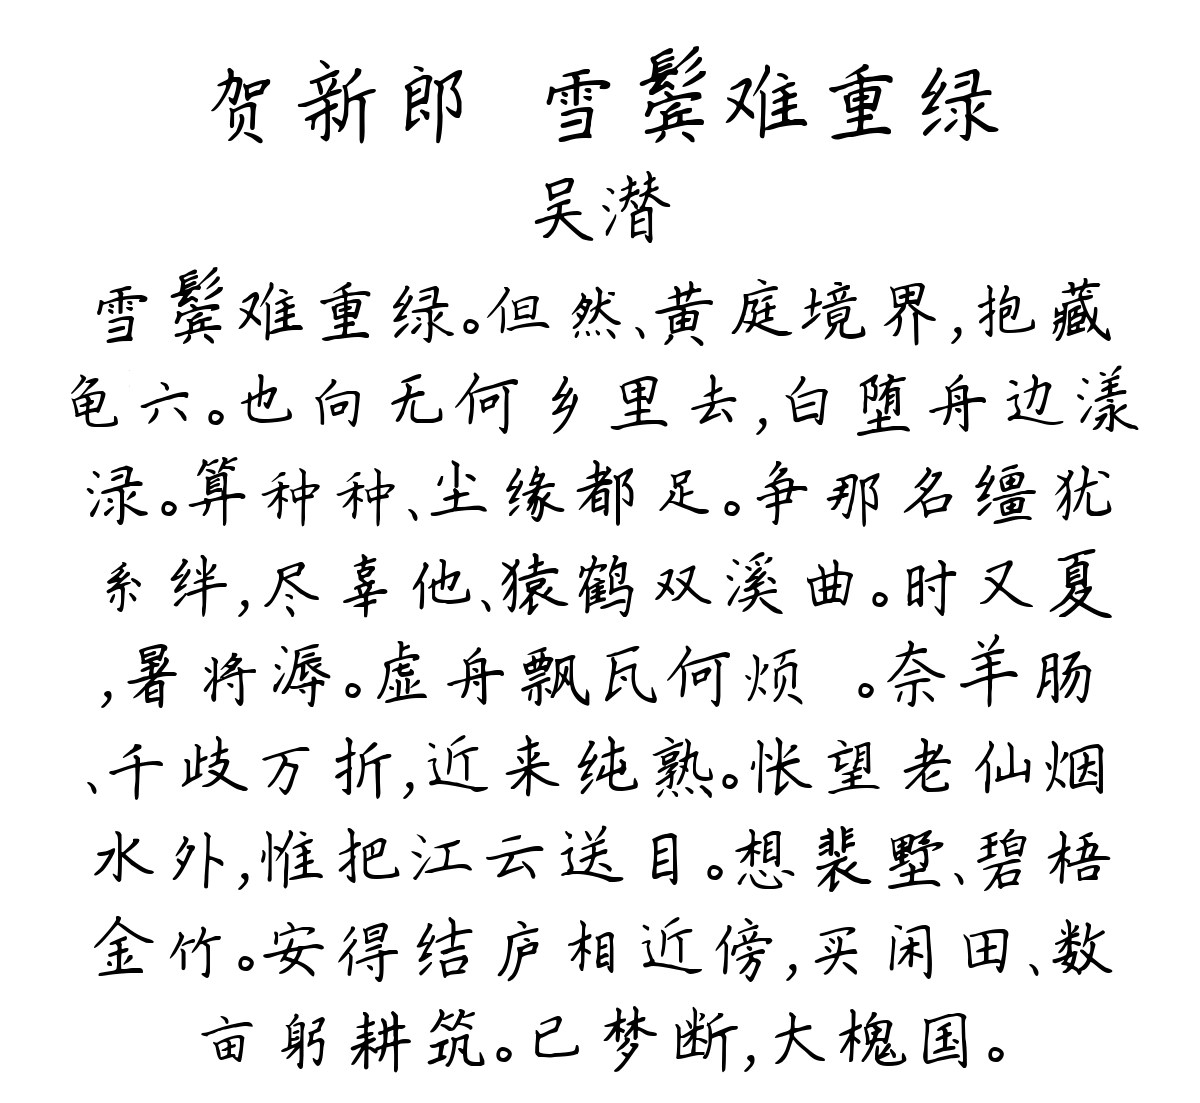 贺新郎 雪鬓难重绿
吴潜
雪鬓难重绿。但然、黄庭境界,抱藏
龟六。也向无何乡里去,白堕舟边漾
渌。算种种、尘缘都足。争那名缰犹
系绊,尽辜他、猿鹤双溪曲。时又夏
,暑将溽。虚舟飘瓦何烦 。奈羊肠
、千歧万折,近来纯熟。怅望老仙烟
水外,惟把江云送目。想裴墅、碧梧
金竹。安得结庐相近傍,买闲田、数
亩躬耕筑。已梦断,大槐国。